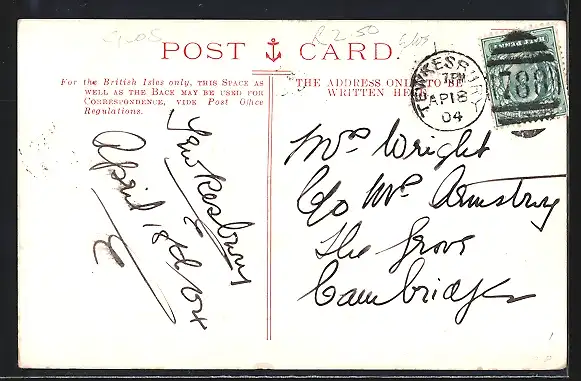 POST CARD.
For the British Isles only, THIS SPACE AS
WELL AS THE BACK MAY BE USED FOR
CORRESPONDENCE, VIDE Post Office
Regulations.
THE ADDRESS ONLY TO BE
WRITTEN HERE
TEWKESBURY
7 PM
AP 18
04
788
R 2.50
Tewkesbury
April 18th/04
Mrs Wright
C/o Mrs Armstrong
The Grove
Cambridge